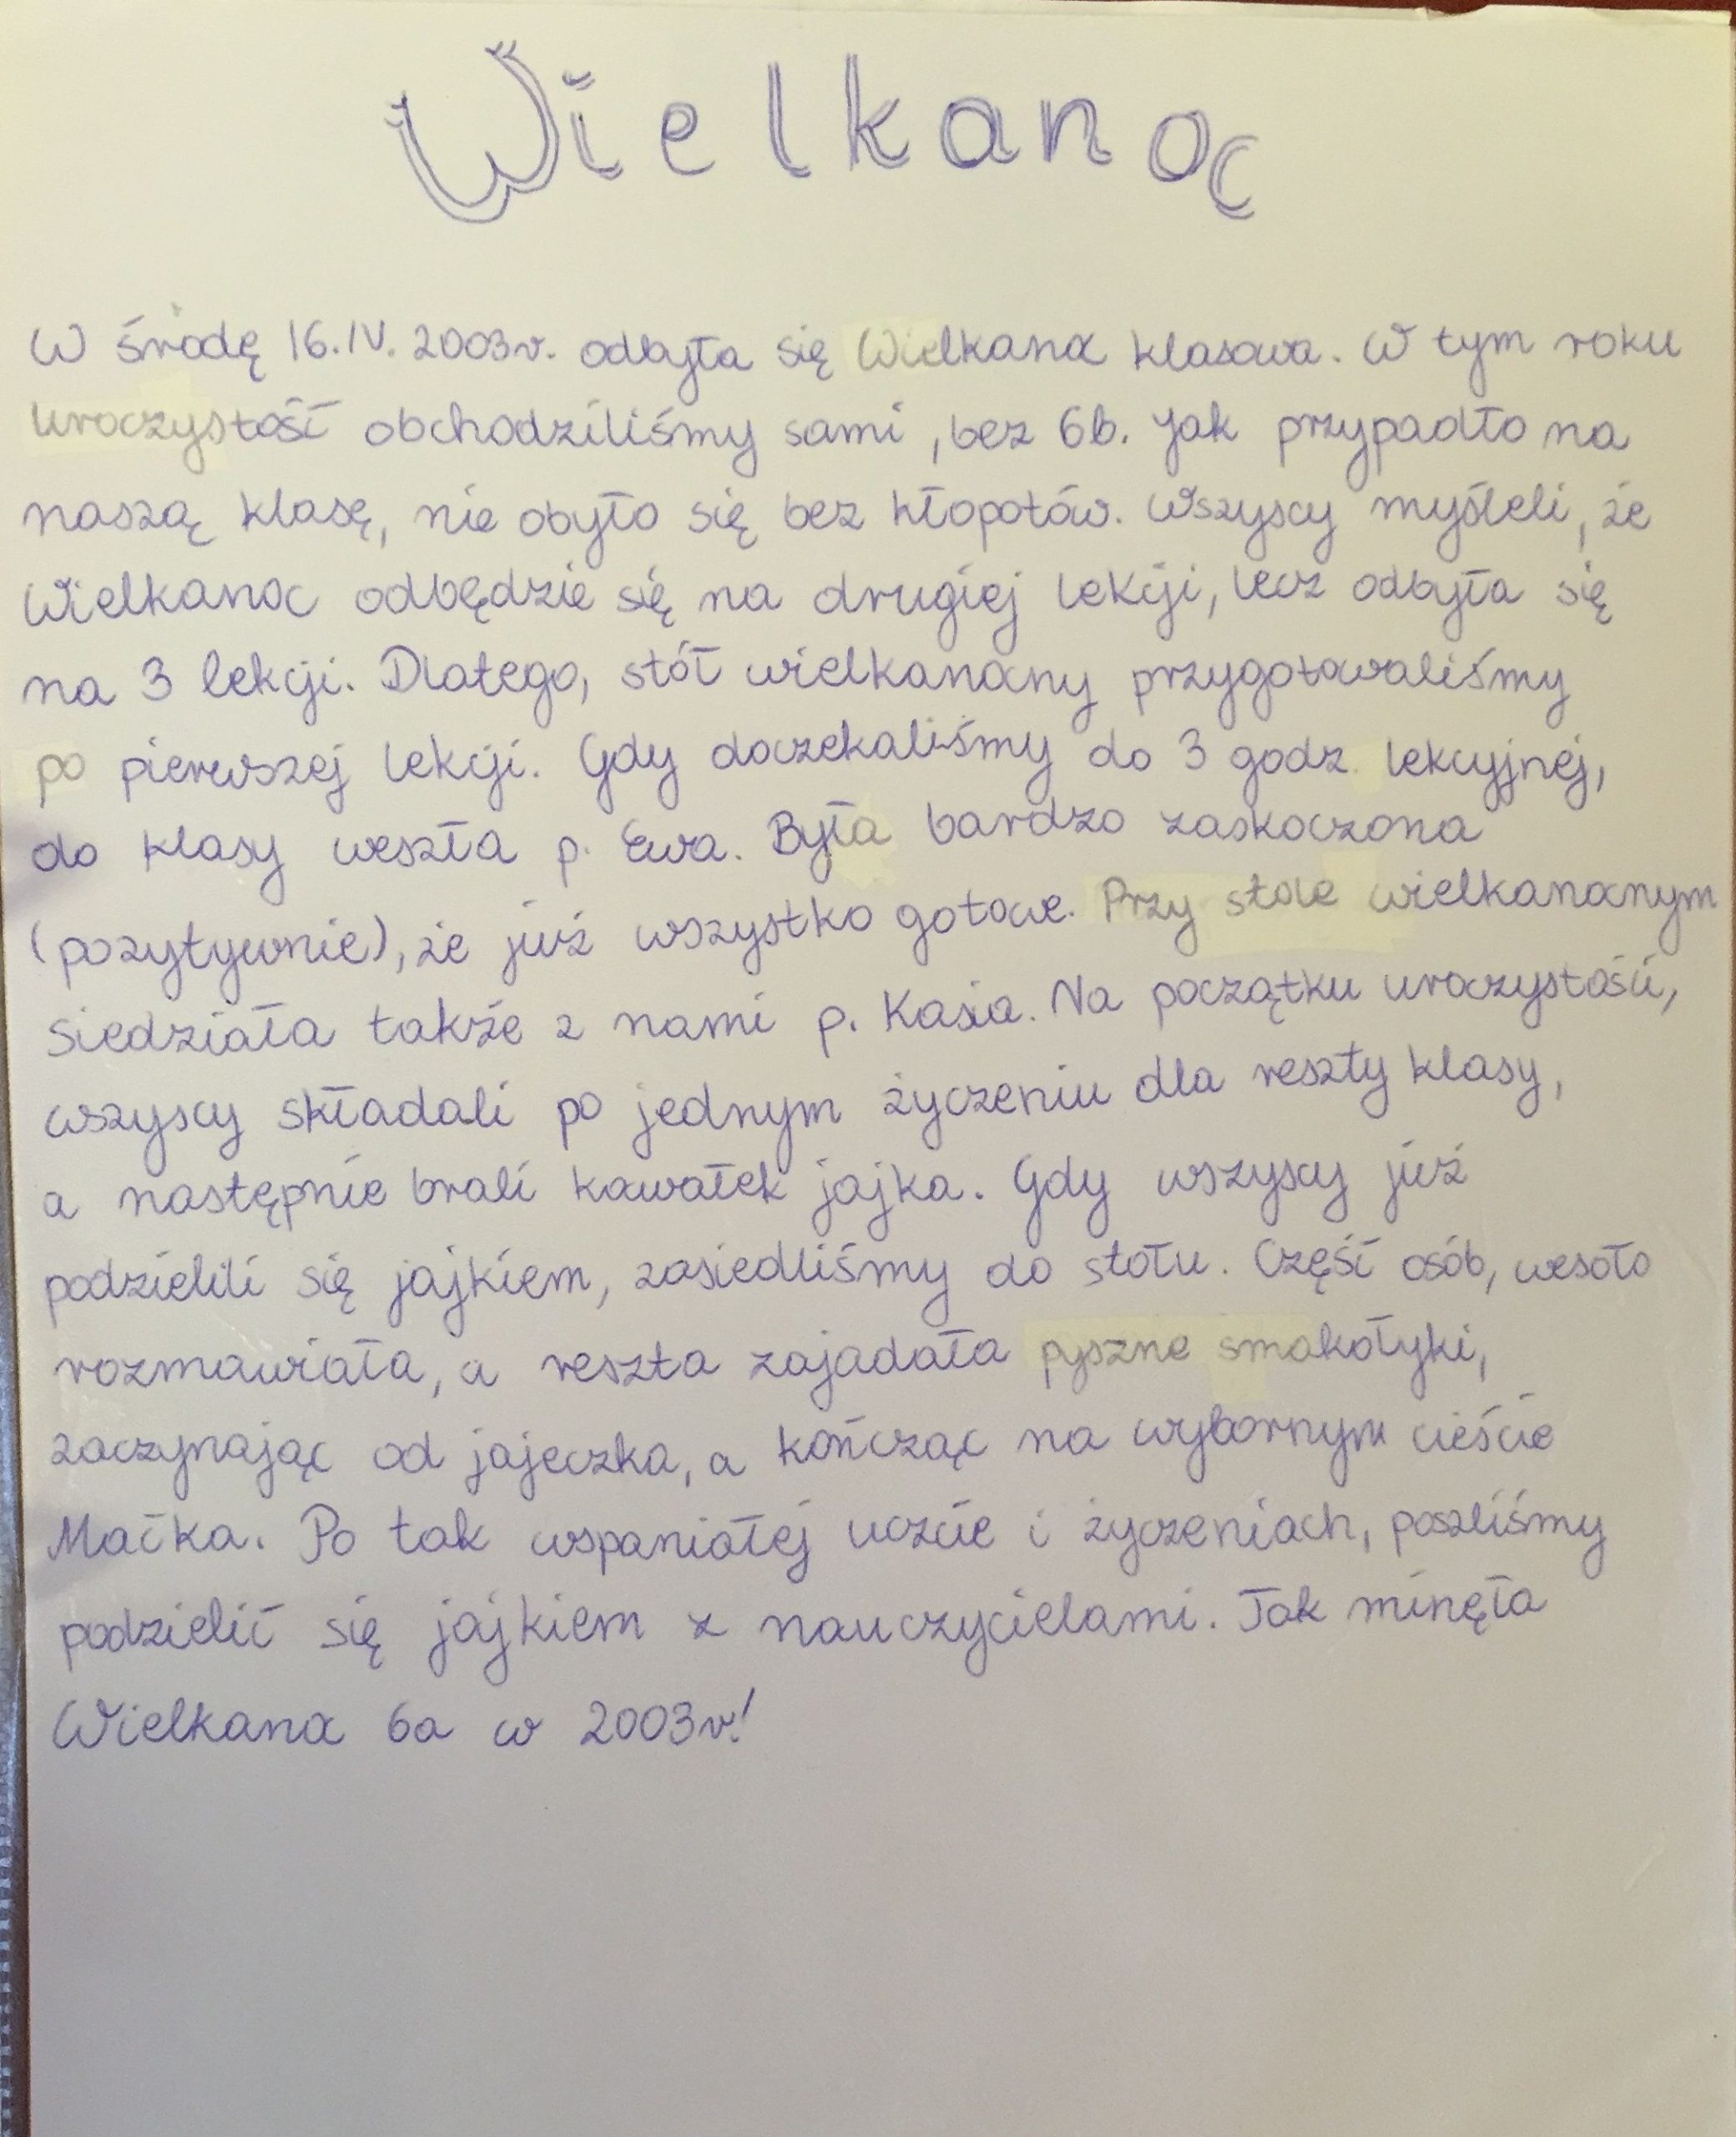 Wielkanoc
W środę 16.IV. 2003r. odbyła się Wielkanoc klasowa. W tym roku
uroczystość obchodziliśmy sami, bez 6b. Jak przypadło na
naszą klasę, nie obyło się bez kłopotów. Wszyscy myśleli, że
Wielkanoc odbędzie się na drugiej lekcji, lecz odbyła się
na 3 lekcji. Dlatego, stół wielkanocny przygotowaliśmy
po pierwszej lekcji. Gdy doczekaliśmy do 3 godz. lekcyjnej,
do klasy weszła p. Ewa. Była bardzo zaskoczona
(pozytywnie), że już wszystko gotowe. Przy stole wielkanocnym
siedziała także z nami p. Kasia. Na początku uroczystości,
wszyscy składali po jednym życzeniu dla reszty klasy,
a następnie brali kawałek jajka. Gdy wszyscy już
podzielili się jajkiem, zasiedliśmy do stołu. Część osób, wesoło
rozmawiała, a reszta zajadała pyszne smakołyki,
zaczynając od jajeczka, a kończąc na wybornym cieście
Maćka. Po tak wspaniałej uczcie i życzeniach, poszliśmy
podzielić się jajkiem z nauczycielami. Tak minęła
Wielkanoc 6a w 2003r.!